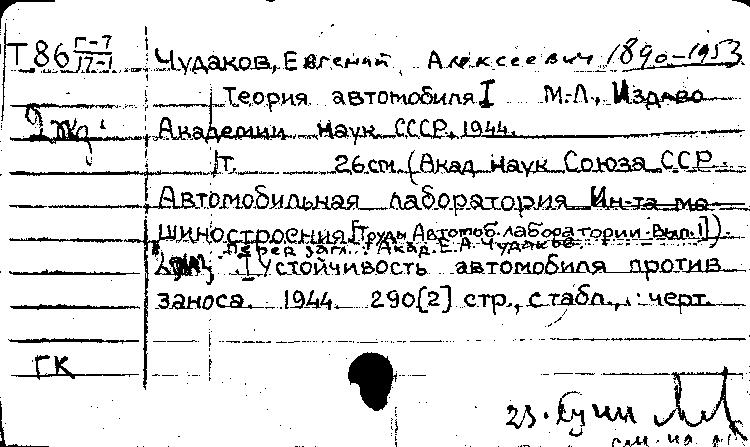 Т86 Г-7/17-1
Чудаков, Евгений Алексеевич 1890-1953
Теория автомобиля I М.-Л., Изд-во
2 экз.
Академии наук СССР, 1944.
т. 26см. (Акад наук Союза ССР.
Автомобильная лаборатория Ин-та ма-
шиностроения [Труды Автомоб. лаборатории. Вып. I]).
Перед заг.: Акад. Е.А. Чудаков
I Устойчивость автомобиля против
заноса. 1944. 290[2] стр., с табл., : черт.
ГК
23.